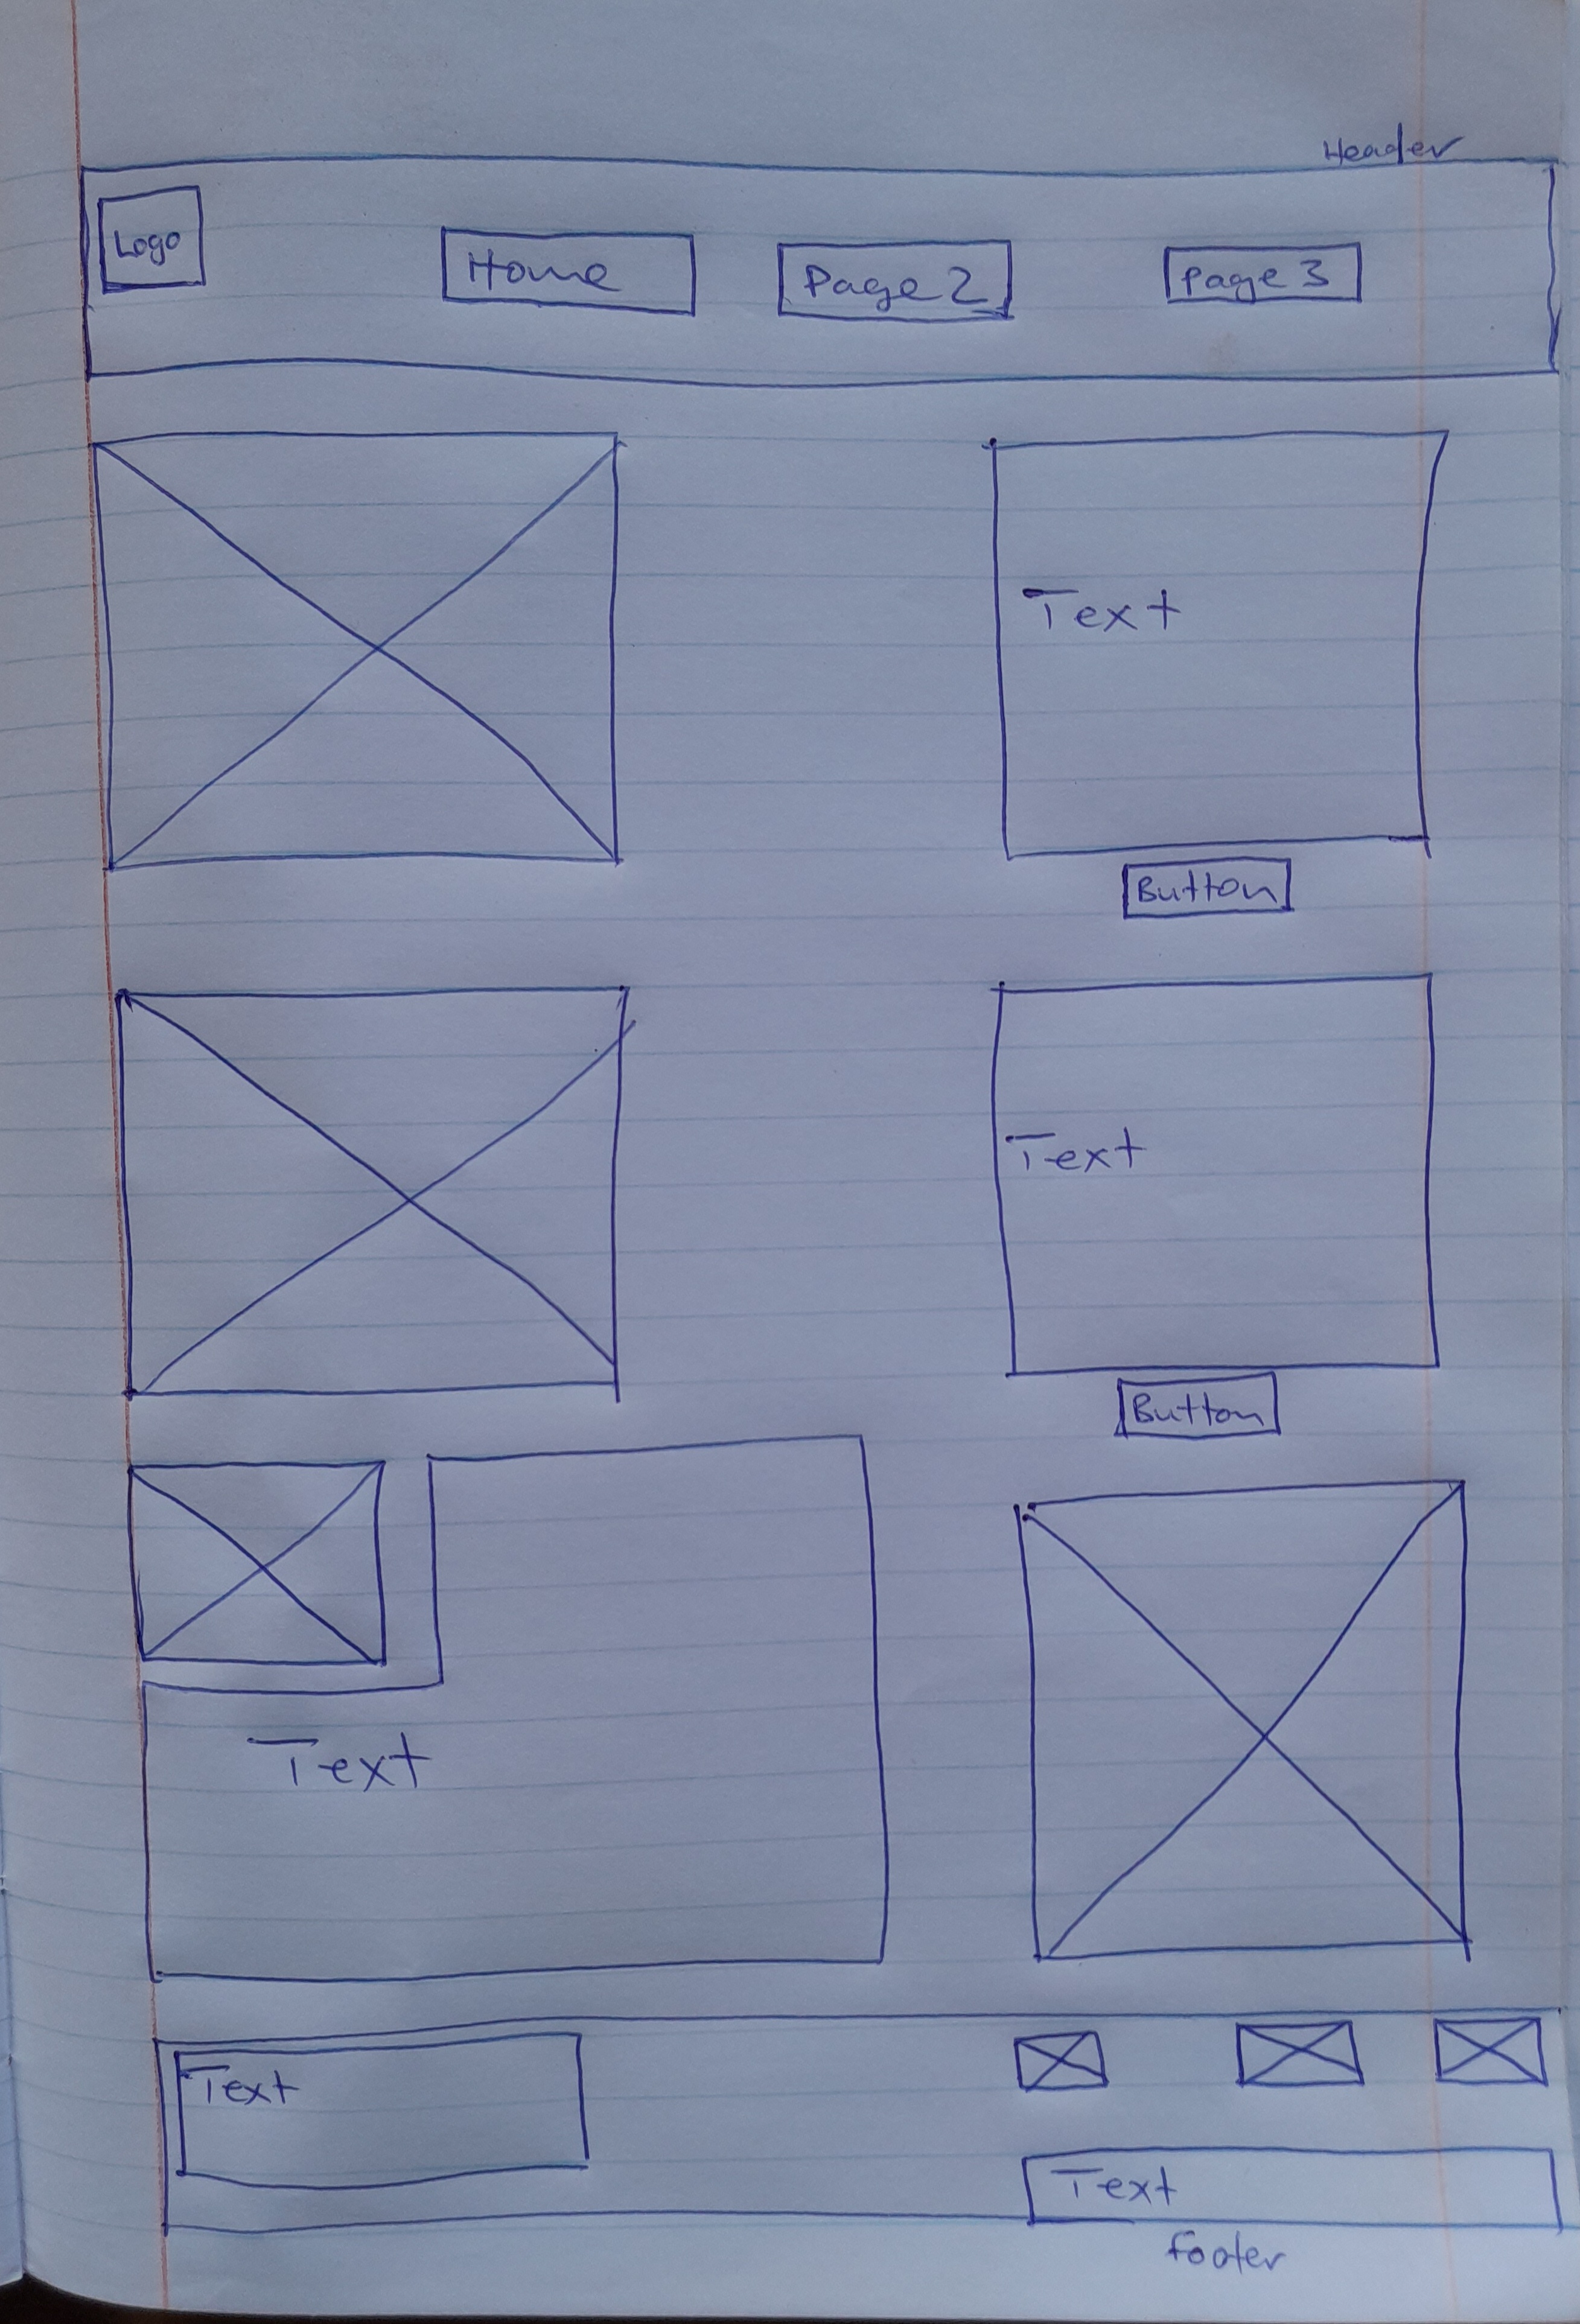 Header
Logo
Home
Page 2
Page 3
Text
Button
Text
Button
Text
Text
Text
footer